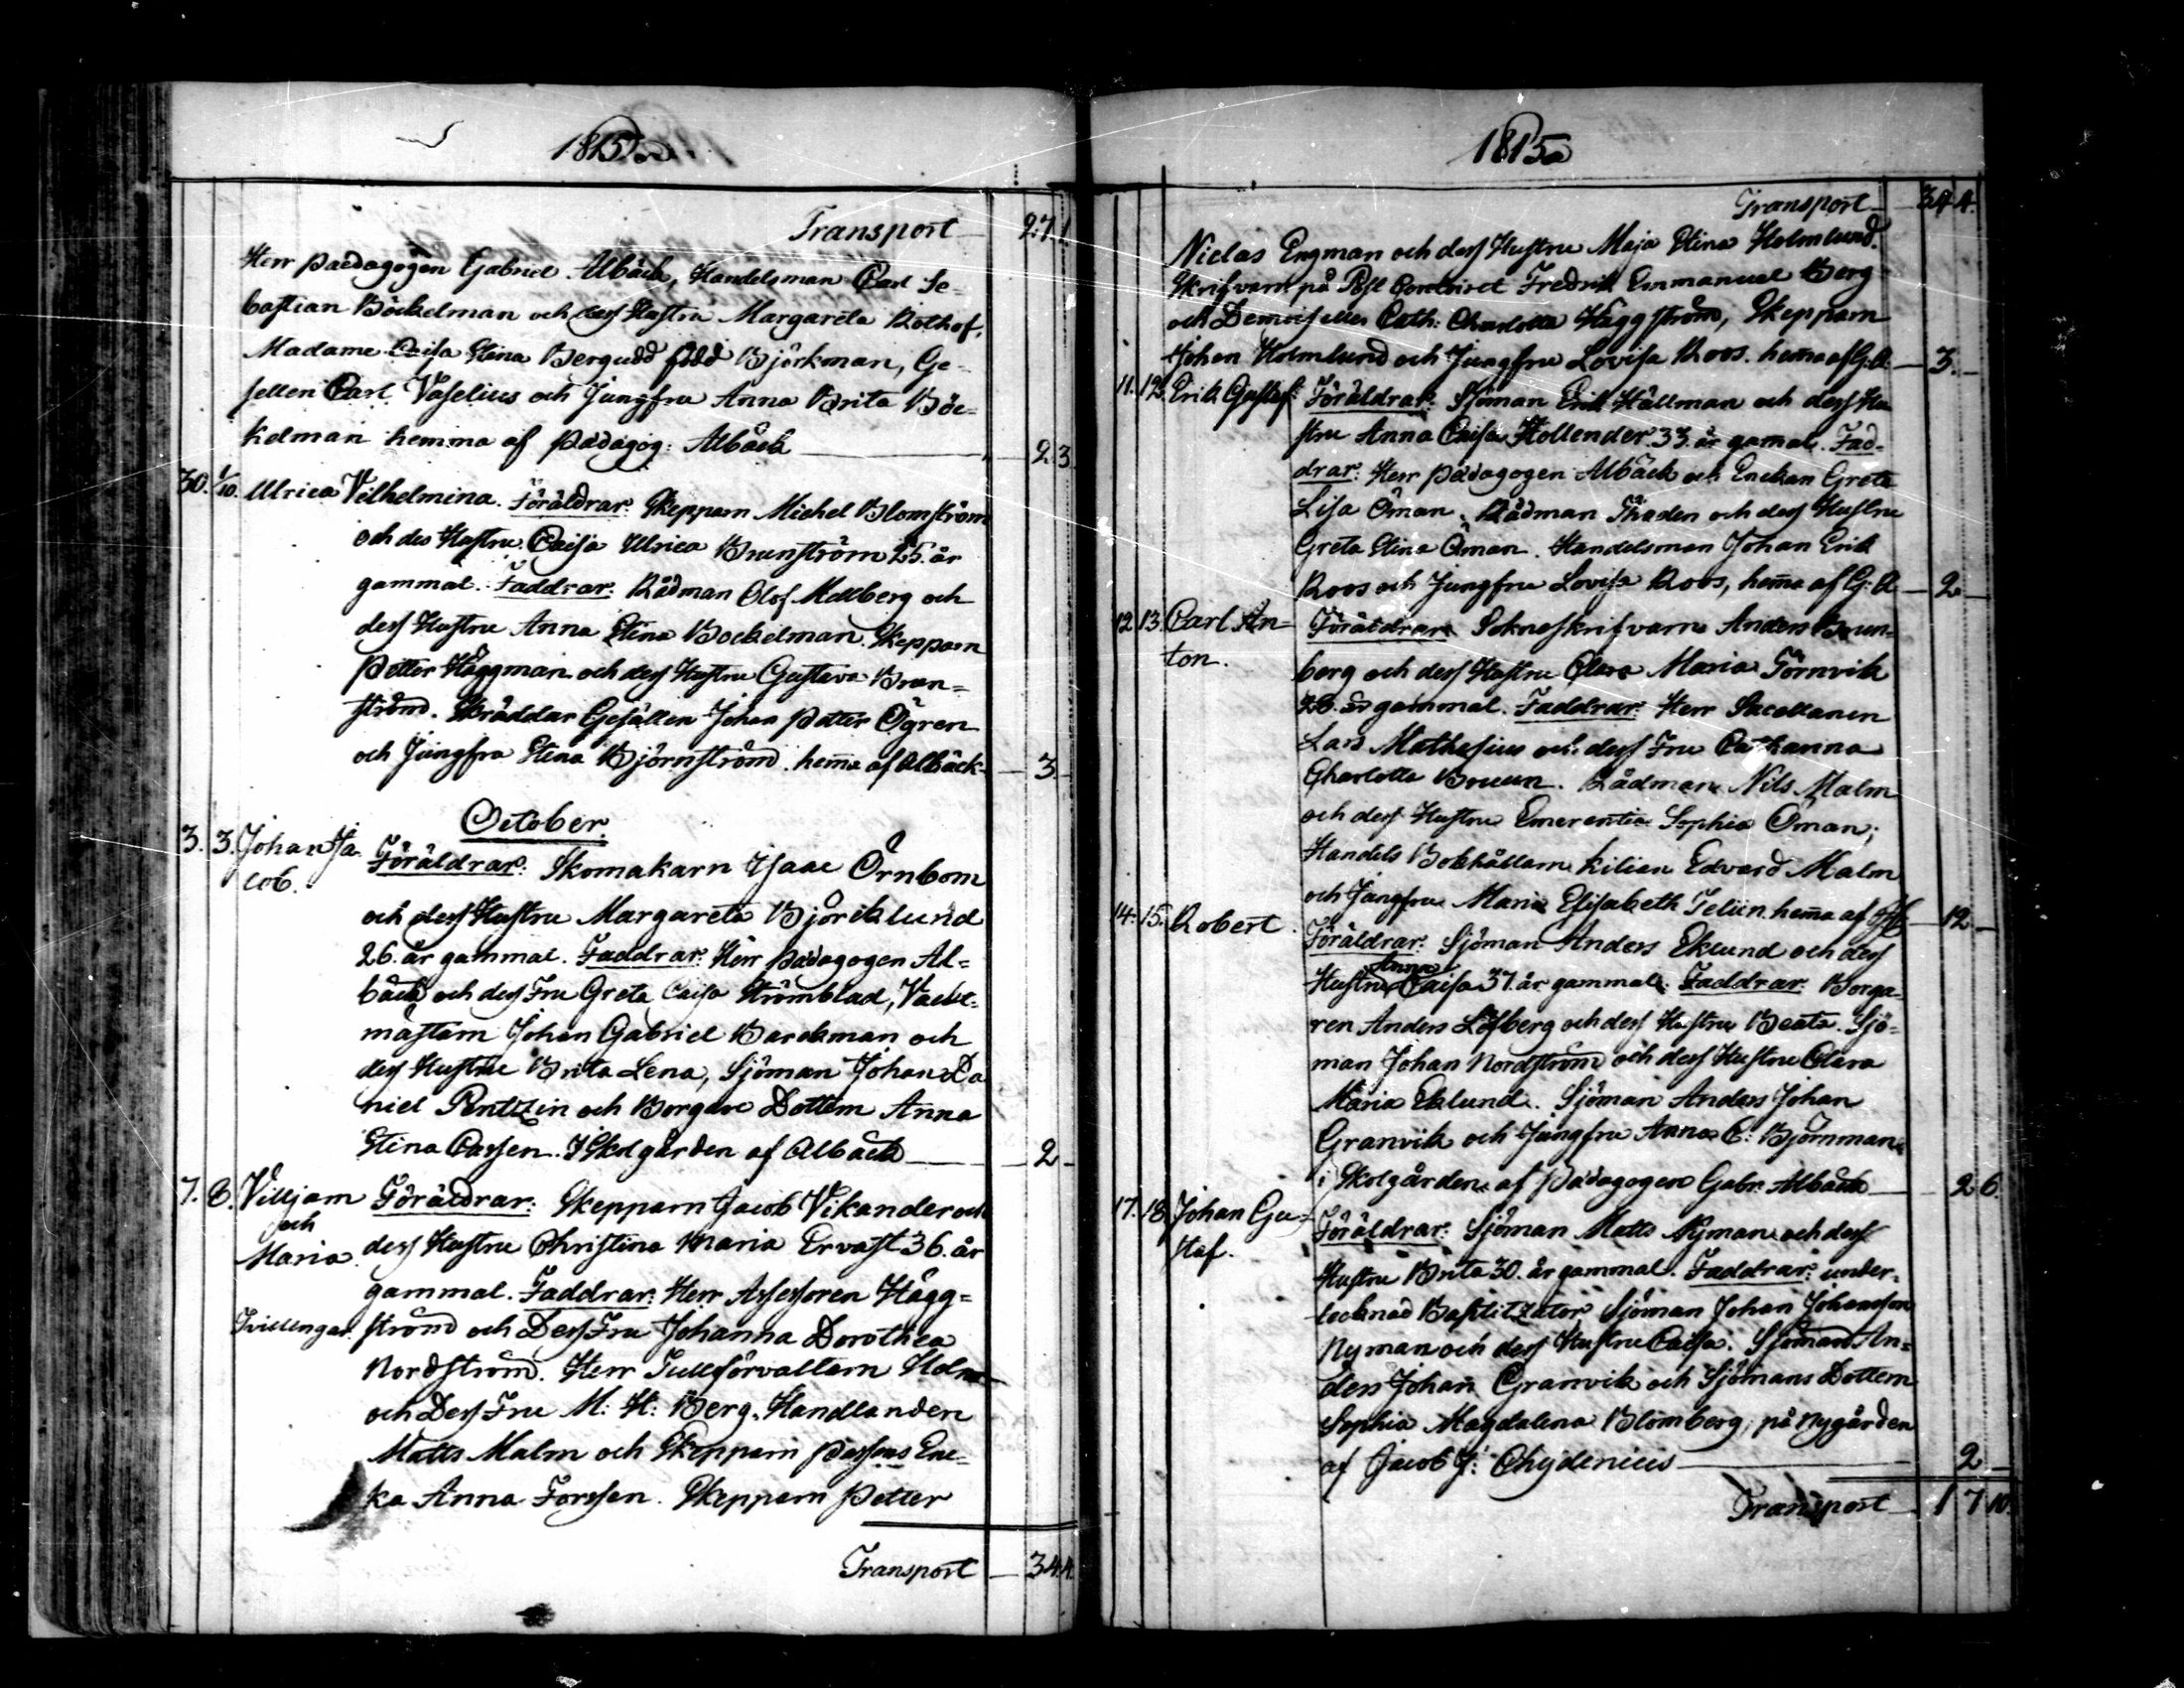 1815.
Transport 2.7.1
Herr Pædagogen Gabriel Albäck, Handelsman Carl Se-
bastian Böckelman och dess Hustru Margareta Rothof,
Madame Caisa Stina Bergudd född Björkman, Ge-
sellen Carl Vaselius och Jungfru Anna Brita Böc-
kelman hemma af Pädagog: Albäck 2 3
30. 1/10. Ulrica Vilhelmina. Föräldrar: Skepparn Michel Blomström
och des Hustru Caisa Ulrica Brunström 25. år
gammal. Faddrar: Rådman Olof Mellberg och
dess Hustru Anna Stina Bockelman. Skepparn
Petter Häggman och dess Hustru Gustava Brun-
ström. Skräddar Gesällen Johan Petter Ögren
och Jungfru Stina Björnström. hem̄a af Albäck 3
October.
3. 3. Johan Ja- Föräldrar: Skomakarn Isaac Örnbom
cob.
och dess Hustru Margareta Björklund
26. år gammal. Faddrar: Herr Pädagogen Al-
bäck och dess Fru Greta Caisa Strömblad, Vackt-
mästarn Johan Gabriel Barckman och
dess Hustru Brita Lena, Sjöman Johan Da
niel Pentzin och Borgare Dottern Anna
Stina Cassen. I Skolgården af Albäck 2
7. 8. Villjam Föräldrar: Skepparn Jacob Vikander och
och
Maria dess Hustru Christina Maria Ervast 36. år
gammal. Faddrar: Herr Assessoren Hägg-
Tvillingar. ström och Dess Fru Johanna Dorothea
Nordström. Herr Tullförvaltarn Holm
och Dess Fru M: H: Berg. Handlanden
Matts Malm och Skepparn Passens Enc-
ka Anna Forssen. Skepparn Petter
Transport 3 4.4.
1815
Transport 3 4 4.
Niclas Engman och dess Hustru Maja Stina Holmlund.
Skrifvarn på Post Contoiret Fredrik Emmanuel Berg
och Demoiselles Cath: Charlotta Häggström, Skepparn
Johan Holmlund och Jungfru Lovisa Roos. hem̄a af G. A. 3.
11. 12. Erik Gustaf: Föräldrar: Sjöman Erik Hällman och dess Hu
stru Anna Caisa Hollender 33. år gamal. Fad-
drar: Herr Pädagogen Albäck och Enckan Greta
Lisa Öman. Rådman Thoden och dess Hustru
Greta Stina Öman. Handelsman Johan Erik
Roos och Jungfru Lovisa Roos, hem̄a af G: A 2
12. 13. Carl An- Föräldrar: Sokneskrifvarn Anders Brun-
ton.
berg och dess Hustru Clara Maria Törnvik
28. år gammal. Faddrar: Herr Sacellanen
Lars Mathesius och dess Fru Catharina
Charlotta Bruun. Rådman Nils Malm
och dess Hustru Emerentia Sophia Öman;
Handels Bokhållarn Kilian Edvard Malm
och Jungfru Maria Elisabeth Telin hem̄a af 12
14. 15. Robert. Föräldrar: Sjöman Anders Eklund och dess
Anna
Hustru Caisa 37. år gammal. Faddrar: Borga-
ren Anders Löfberg och dess Hustru Beata. Sjö-
man Johan Nordström och dess Hustru Clara
Maria Eklund. Sjöman Anders Johan
Granvik och Jungfru Anna C: Björnman
i Skolgården af Pädagogen Gabr. Albäck 2 6.
17. 18. Johan Gu- Föräldrar: Sjöman Matts Nyman och dess
staf.
Hustru Brita 30. år gammal. Faddrar: under-
tecknad Baptitzator, Sjöman Johan Johansson
Nyman och dess Hustru Caisa. Sjöman An-
ders Johan Granvik och Sjömans Dottern
Sophia Magdalena Blomberg, på Nygården
af Jacob J: Chydenius 2
Transport 1 7 10.